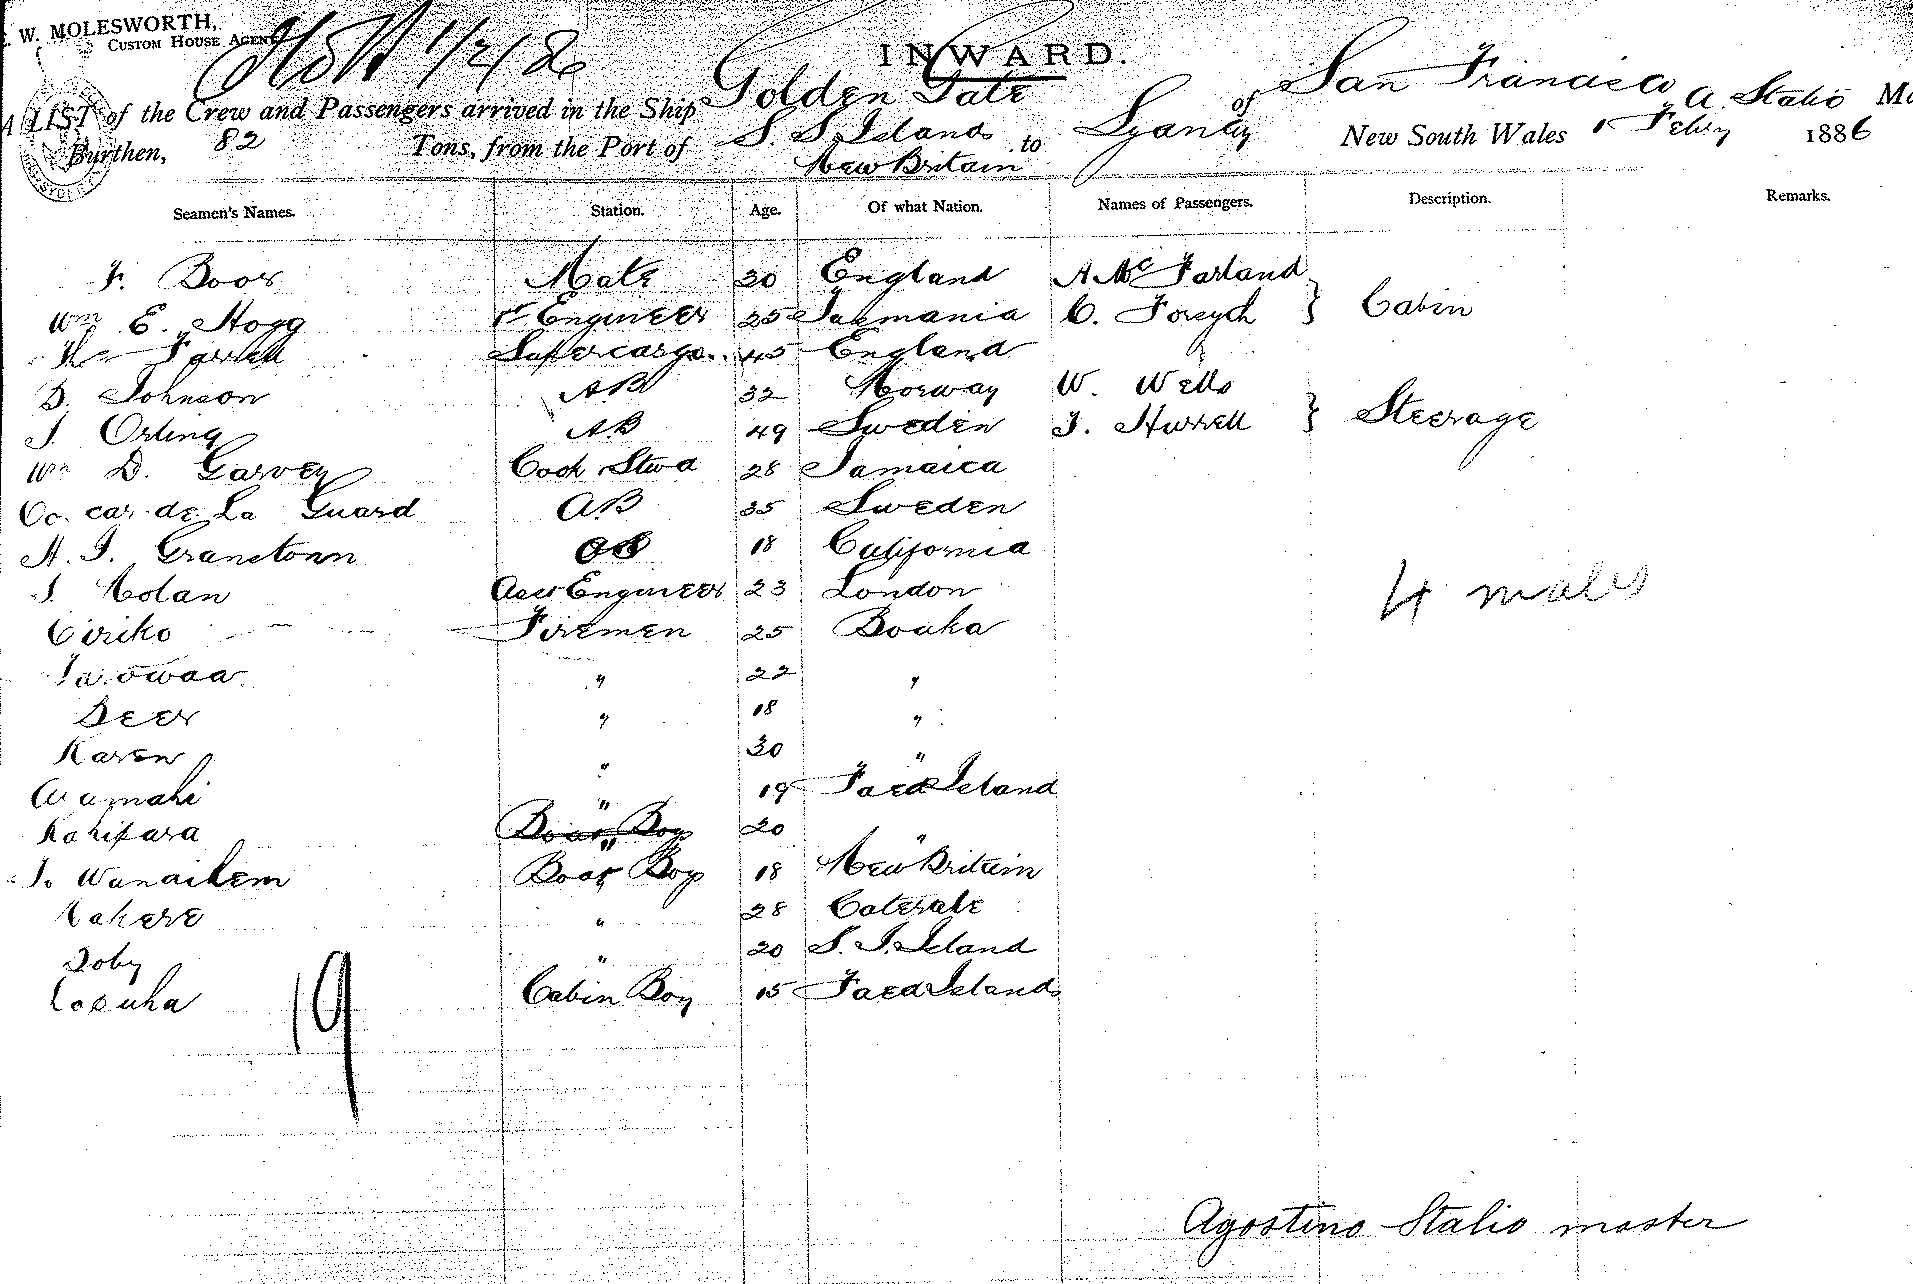 W. MOLESWORTH,
CUSTOM HOUSE AGENT
INWARD.
A LIST of the Crew and Passengers arrived in the Ship Golden Gate of San Francisco A. Stalio
Burthen, 82 Tons, from the Port of S. S. Islands New Britain to Sydney New South Wales 1 Feby 1886
Seamen's Names. Station. Age. Of what Nation. Names of Passengers. Description. Remarks.
F. Boor Mate 30 England A McFarland
Wm E. Hogg 1st Engineer 25 Tasmania C. Forsyth } Cabin
Farrell Supercargo 45 England
D. Johnson AB 32 Norway W. Wells
J. Orling AB 49 Sweden J. Hurrell } Steerage
Wm D. Garvey Cook Stwd 28 Jamaica
Oscar de La Guard AB 35 Sweden
A. J. Granstonn OS 18 California
J. Nolan Asst Engineer 23 London
4 males
Ciriko Firemen 25 Bouka
Tarowaa " 22 "
Deer " 18 "
Karen " 30 "
Wamaki " 19 Faed Island
Kahipara Boat Boy " 20 "
To Wanaikem Boat Boy 18 New Britain
Nakere " 28
Toby " 20 S. S. Island
Cabin Boy 15 Faed Islands
19
Agostino Stalio master